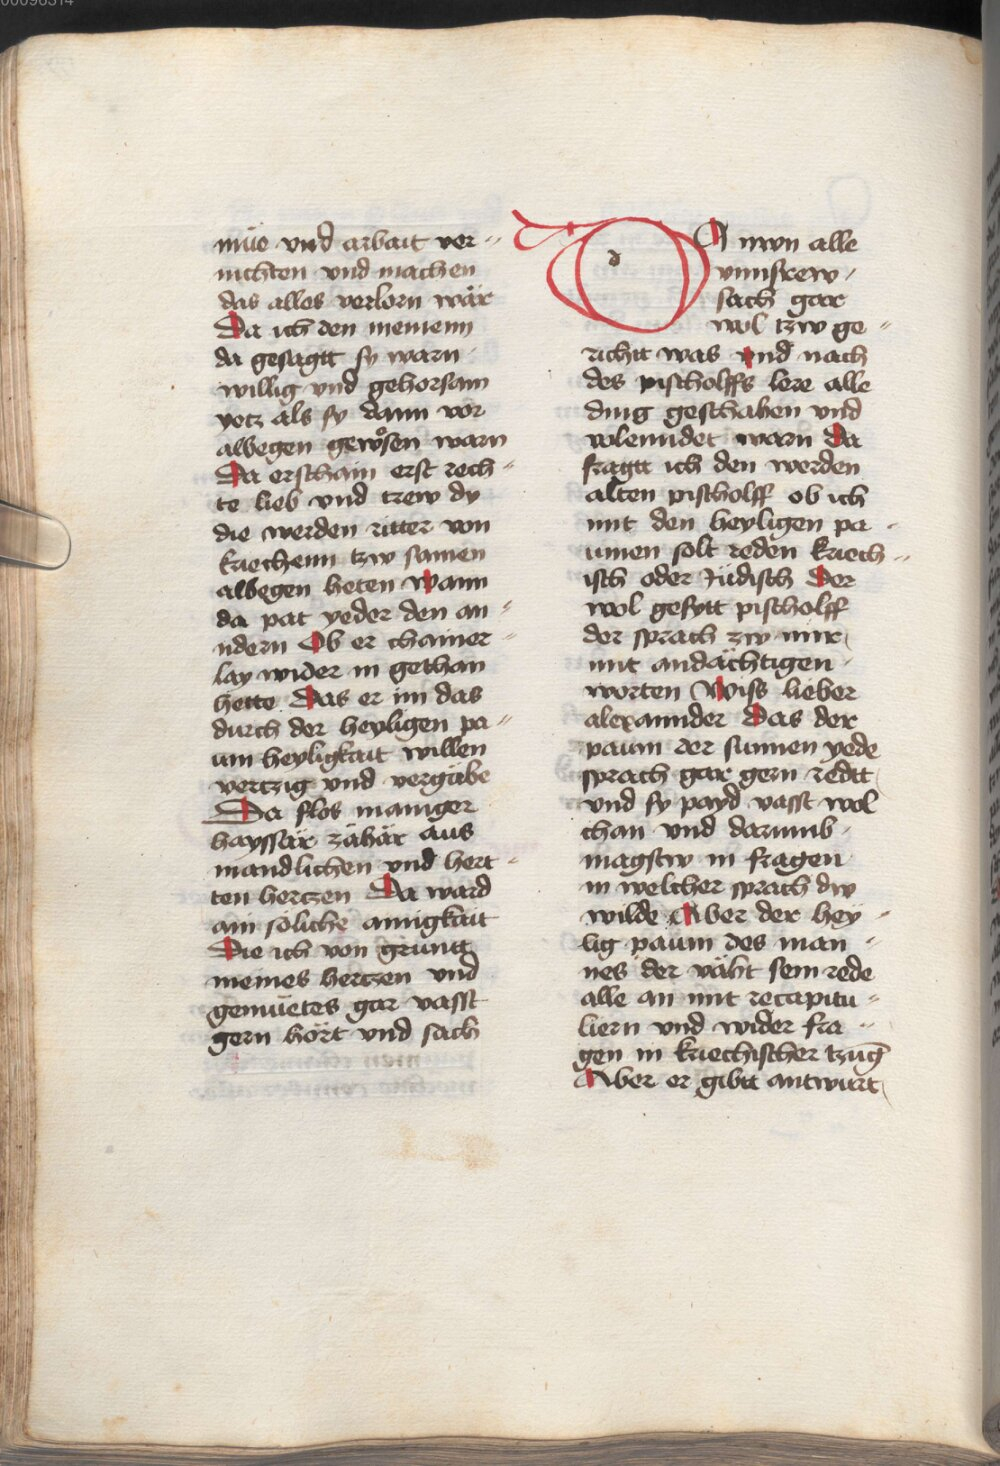 müe vnd arbait ver=
nichten vnd machen
das alles verlorn wär
Da ich den meinenn
da gesagtt sy warn
willig vnd gehorsam
yetz als sy dann vor
albegen gewösen warn
Da erschain erst rech=
te lieb vnd trew dy
die werden ritter von
kriechenn tzw samen
albegen heten Wann
da pat yeder den an=
ndern Ob er chainer=
lay wider in gethan
hette Das er im das
durch der heyligen pa=
um heyligkait willen
vertzig vnd vergäbe
Da flos maniger
hayssär zähär aus
mandlichen vnd hert=
ten hertzen Da ward
ain söliche ainigkait
Die ich von gruntt
meines hertzen vnd
gemüetes gar vasst
gern hört vnd sach
DA nwn alle
vnnsrew
sach gar
wol tzw ge=
richtt was vnd nach
des pischolffs lere alle
ding geschahen vnd
volenndet warn Da
fragtt ich den werden
alten pischolff ob ich
mit den heyligen pa=
umen solt reden kriech=
isch oder Jüdisch Der
wol gesytt pischolff
der sprach zw mir
mit andächtigen
worten Wiss lieber
alexannder Das der
paum der sunnen yede
sprach gar gern redtt
vnd sy payd vasst wol
chan vnd darumb
magstw in fragen
in welcher sprach dw
wilde Aber der hey=
lig paum des man=
nes der väht sein rede
alle an mit recapitu=
liern vnd wider fra=
gen in kriechischer tzüg
Aber er gibtt antwurt
00096314